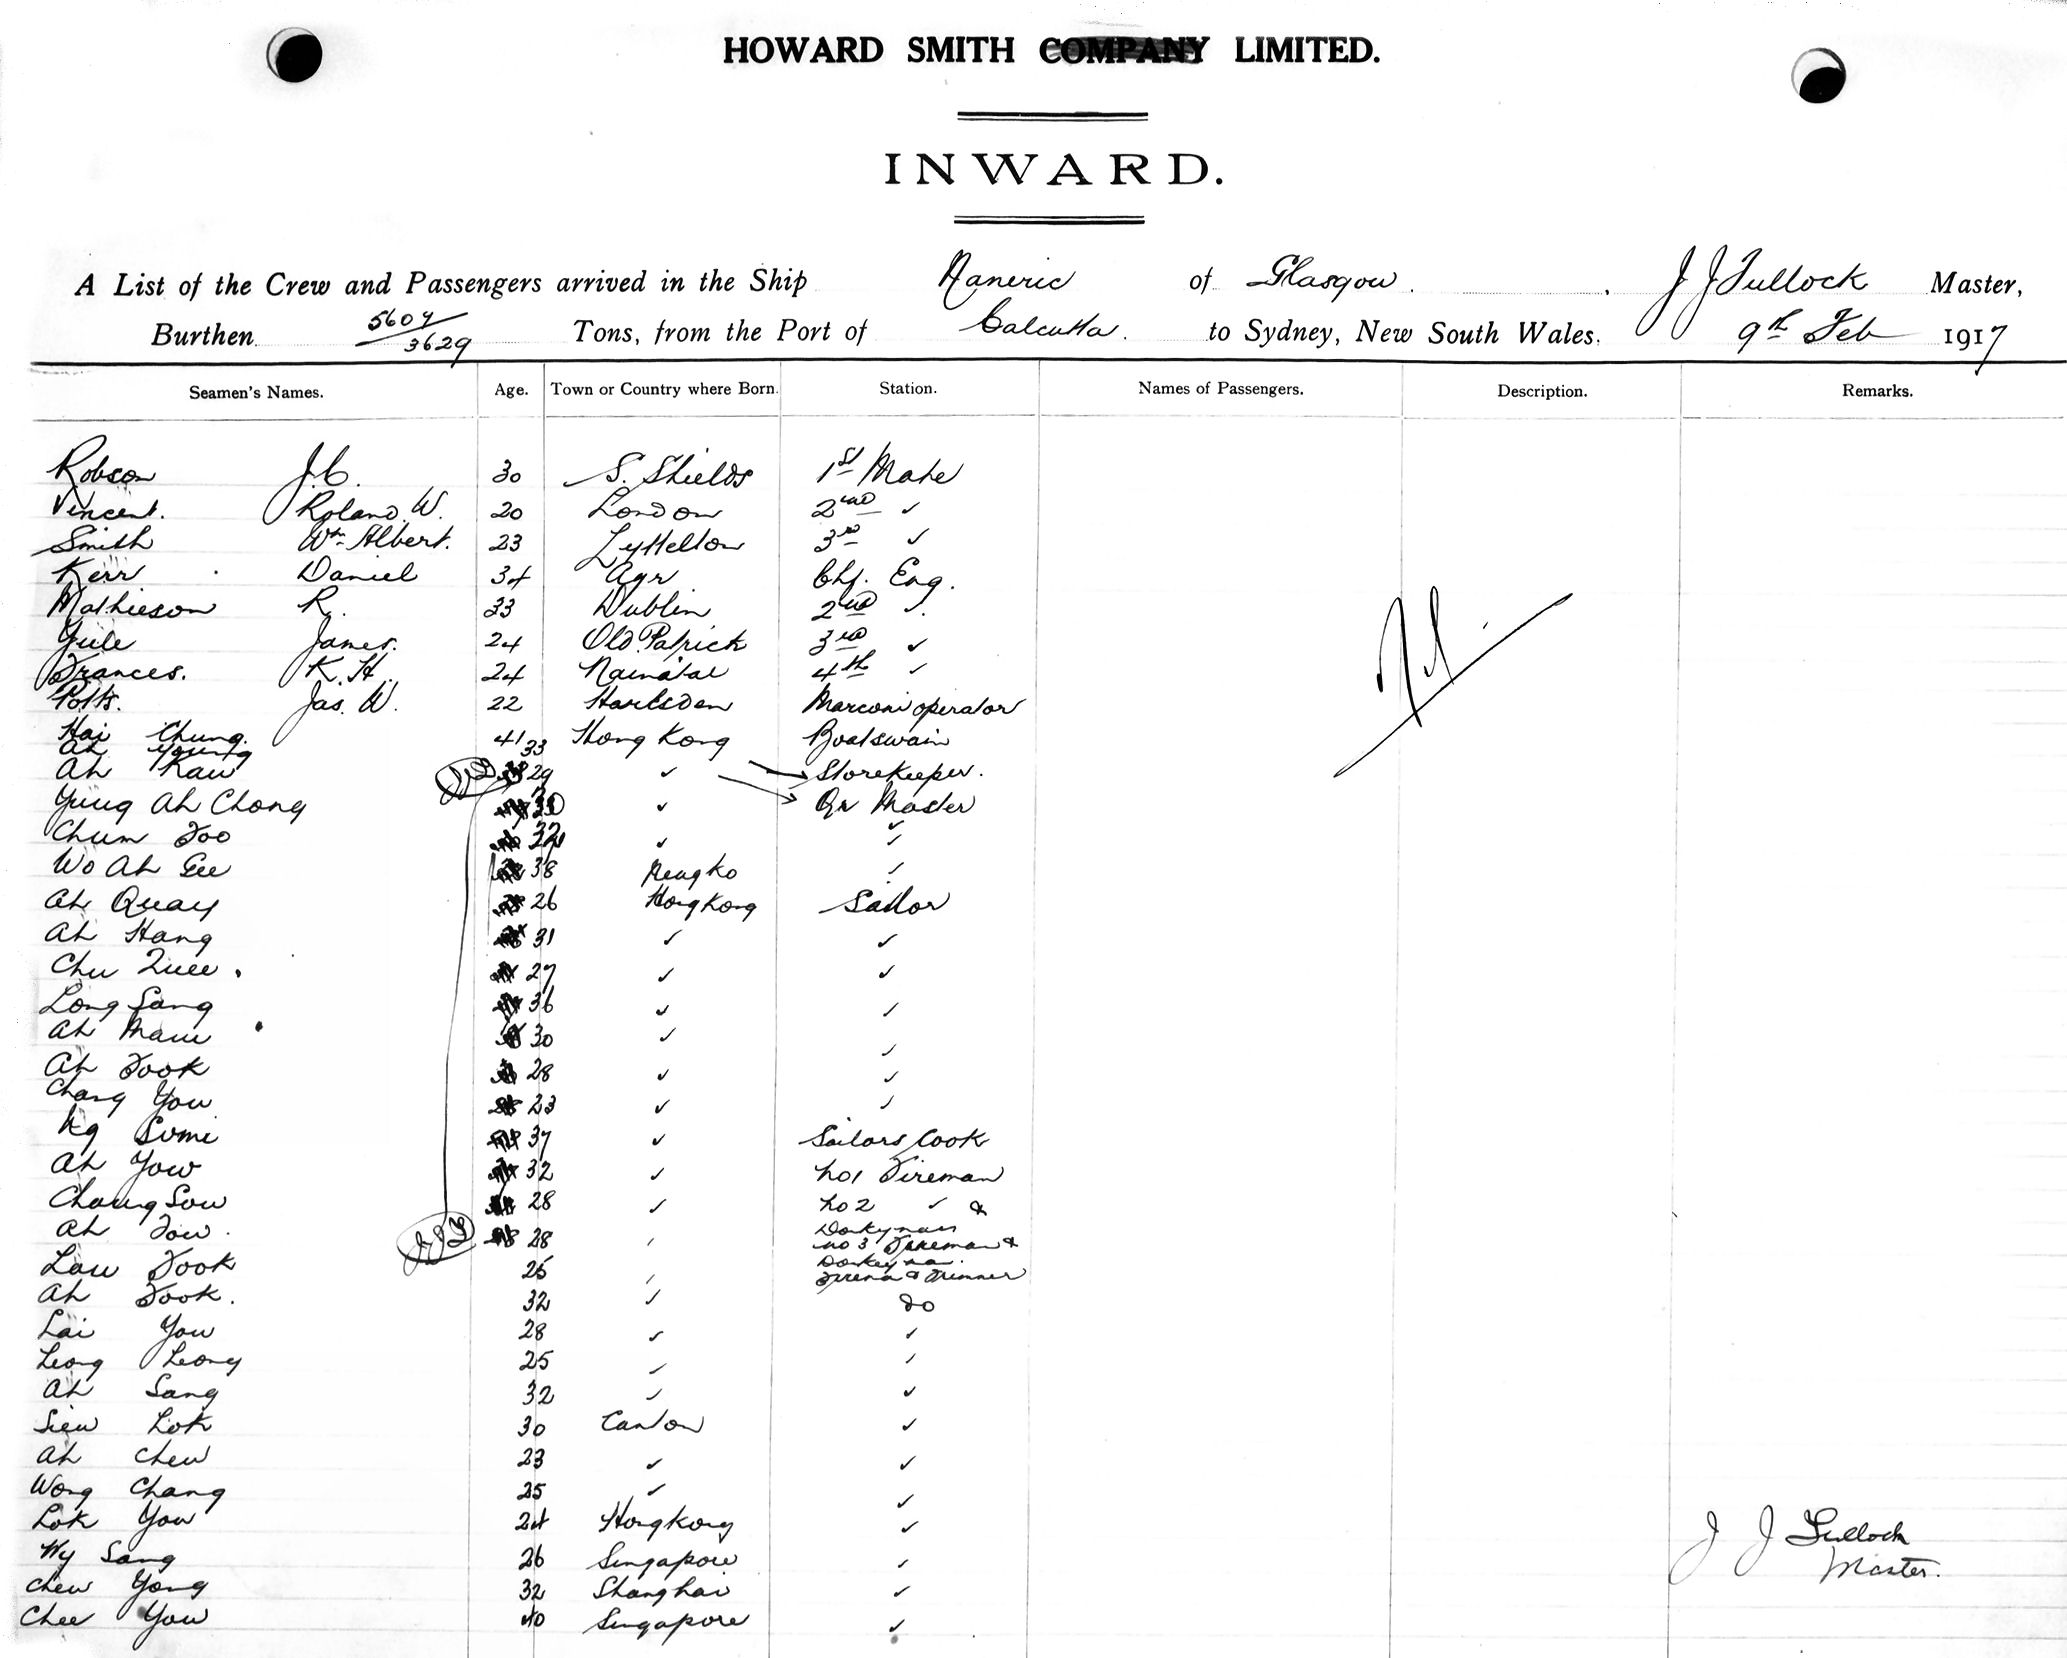 HOWARD SMITH COMPANY LIMITED.
INWARD.
A List of the Crew and Passengers arrived in the Ship Raneric of Glasgow. J J Tullock Master,
Burthen 5604/3629 Tons, from the Port of Calcutta. to Sydney, New South Wales. 9th Feb 1917
Seamen's Names. Age. Town or Country where Born. Station. Names of Passengers. Description. Remarks.
Robson J.C. 30 S. Shields 1st Mate
Vincent. Roland. W. 20 London 2nd ✓
Smith Wm Albert. 23 Lyttelton 3rd ✓
Kerr Daniel 34 Ayr Chf. Eng.
Mathieson R. 33 Dublin 2nd ✓
Yule James. 24 Old Patrick 3rd ✓
Frances. K. H. 24 Nainatal 4th ✓
Potts. Jas. W. 22 Harlsden Marconi operator
Nil
Hai Chung. 41 Hong Kong Boatswain
Ah Young 33
Ah Kaw 29 ✓ Storekeeper.
Yung Ah Chong ✓ Qr Master
Chum Foo ✓ ✓
Wo Ah Gee 38 Ningko ✓
Ah Quay 26 Hongkong Sailor
Ah Hang 31 ✓ ✓
Chu 27 ✓ ✓
Long Sang 36 ✓ ✓
Ah 30 ✓ ✓
Ah Fook 28 ✓ ✓
Chang You 23 ✓ ✓
Ng 37 ✓ Sailors Cook
Ah Yow 32 ✓ No 1 Fireman
Chaung Sow 28 ✓ No 2 ✓ &
Donkyman
Ah Fow. 28 ✓ No 3 Fireman &
Donkeyman
Law Fook 25 ✓ Firema & Trimmer
Ah Fook. 32 ✓ do
Lai You 28 ✓ ✓
Leong Leong 25 ✓ ✓
Ah Sang 32 ✓ ✓
Siew Lok 30 Canton ✓
Ah Chew 23 ✓ ✓
Wong Chang 25 ✓ ✓
Lok You 24 Hongkong ✓
Wy Sang 26 Singapore ✓
Chew Yong 32 Shanghai ✓
Chee You 40 Singapore ✓
J J Tullock
Master.